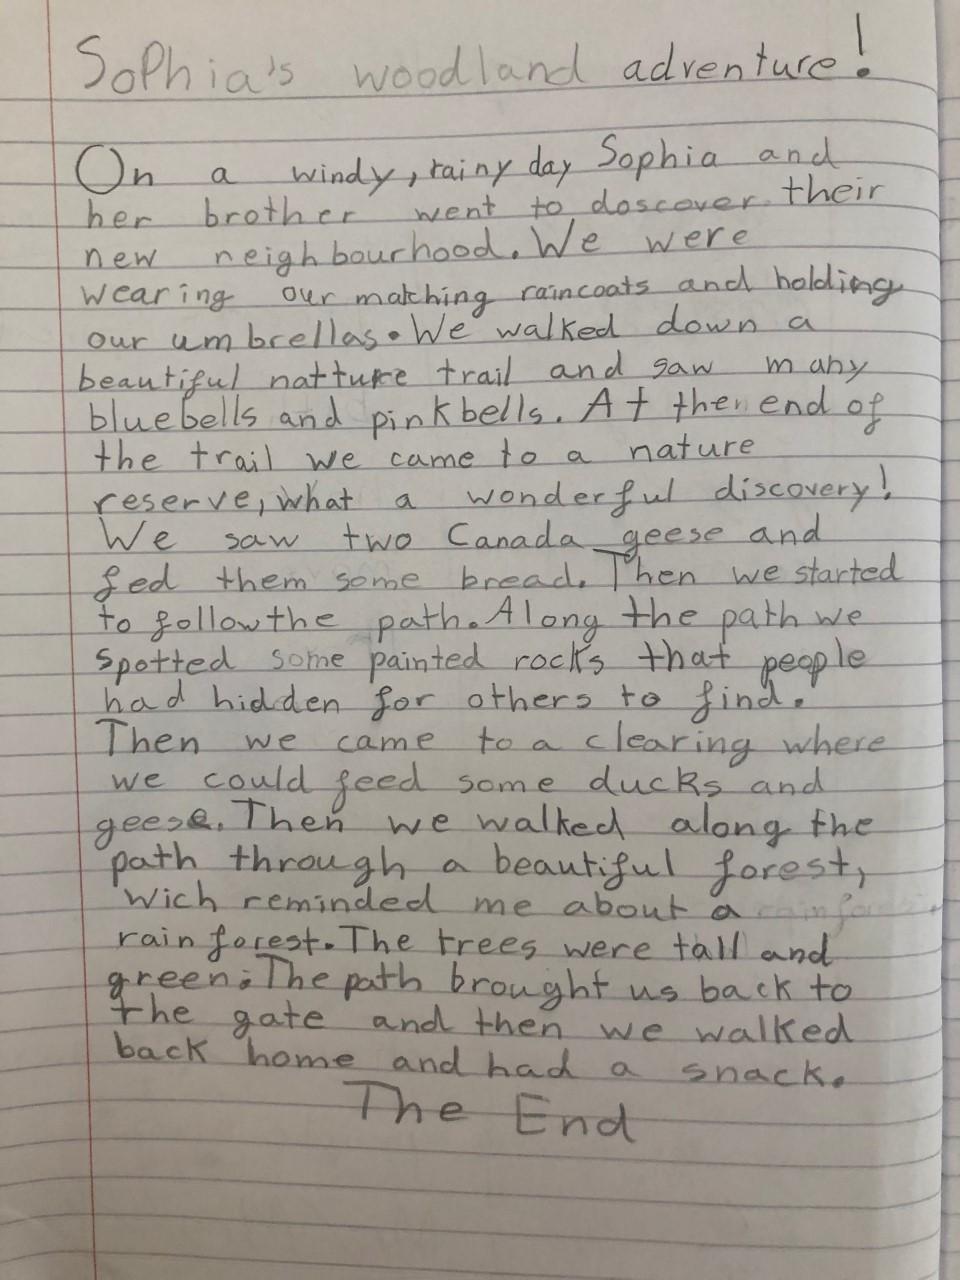 Sophia's woodland adventure!
On a windy, rainy day Sophia and
her brother went to doscover their
new neighbourhood. We were
wearing our matching raincoats and holding
our umbrellas. We walked down a
beautiful natture trail and saw many
bluebells and pinkbells. At then end of
the trail we came to a nature
reserve, what a wonderful discovery!
We saw two Canada geese and
fed them some bread. Then we started
to follow the path. Along the path we
spotted some painted rocks that people
had hidden for others to find.
Then we came to a clearing where
we could feed some ducks and
geese. Then we walked along the
path through a beautiful forest,
wich reminded me about a
rain forest. The trees were tall and
green. The path brought us back to
the gate and then we walked
back home and had a snack.
The End